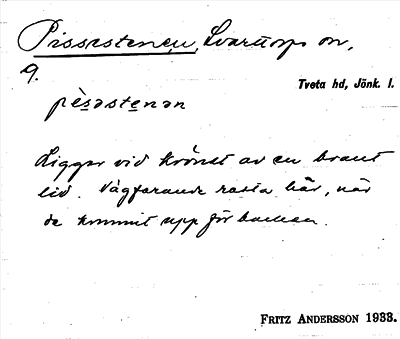 Pissestenen, Svarttorps sn,
9.
Tveta hd, Jönk. l.
pèsəstenən
Ligger vid krönet av en brant
lid. Vägfarande rasta här, när
de kommit upp för backen.
FRITZ ANDERSSON 1933.